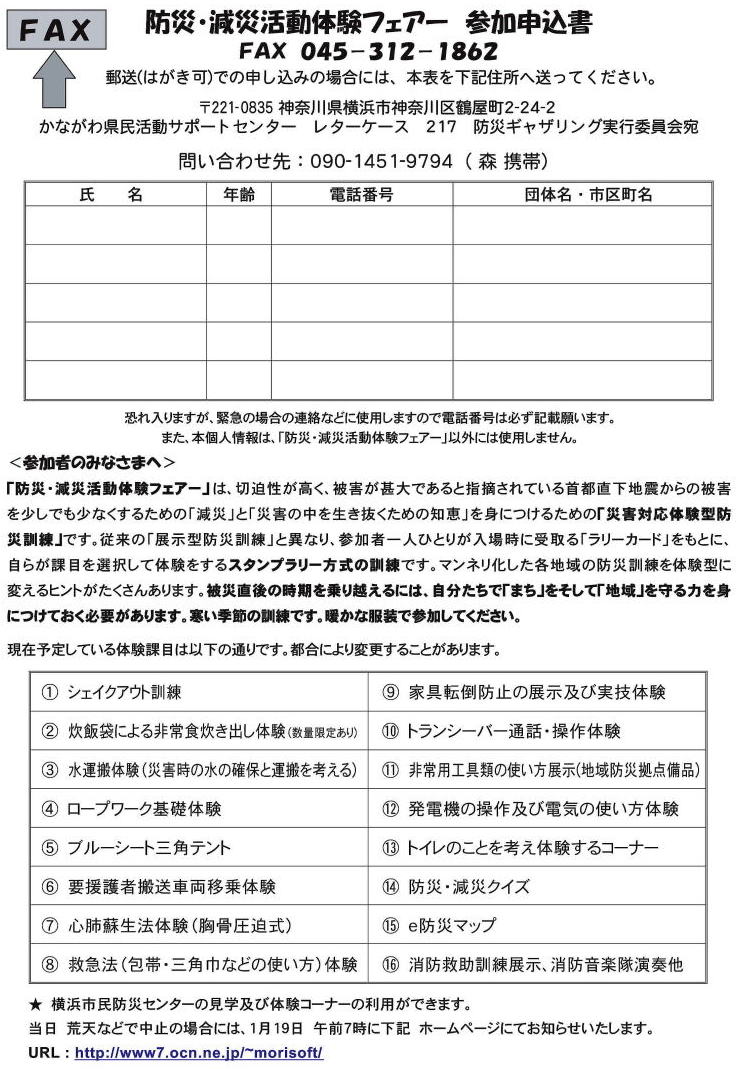 FAX
防災・減災活動体験フェアー 参加申込書
FAX 045-312-1862
郵送(はがき可)での申し込みの場合には、本表を下記住所へ送ってください。
〒221-0835 神奈川県横浜市神奈川区鶴屋町2-24-2
かながわ県民活動サポートセンター レターケース 217 防災ギャザリング実行委員会宛
問い合わせ先：090-1451-9794（ 森 携帯）
氏 名 年齢 電話番号 団体名・市区町名
恐れ入りますが、緊急の場合の連絡などに使用しますので電話番号は必ず記載願います。
また、本個人情報は、「防災・減災活動体験フェアー」以外には使用しません。
＜参加者のみなさまへ＞
「防災・減災活動体験フェアー」は、切迫性が高く、被害が甚大であると指摘されている首都直下地震からの被害
を少しでも少なくするための「減災」と「災害の中を生き抜くための知恵」を身につけるための「災害対応体験型防
災訓練」です。従来の「展示型防災訓練」と異なり、参加者一人ひとりが入場時に受取る「ラリーカード」をもとに、
自らが課目を選択して体験をするスタンプラリー方式の訓練です。マンネリ化した各地域の防災訓練を体験型に
変えるヒントがたくさんあります。被災直後の時期を乗り越えるには、自分たちで「まち」をそして「地域」を守る力を身
につけておく必要があります。寒い季節の訓練です。暖かな服装で参加してください。
現在予定している体験課目は以下の通りです。都合により変更することがあります。
① シェイクアウト訓練
② 炊飯袋による非常食炊き出し体験（数量限定あり）
③ 水運搬体験（災害時の水の確保と運搬を考える）
④ ロープワーク基礎体験
⑤ ブルーシート三角テント
⑥ 要援護者搬送車両移乗体験
⑦ 心肺蘇生法体験（胸骨圧迫式）
⑧ 救急法（包帯・三角巾などの使い方）体験
⑨ 家具転倒防止の展示及び実技体験
⑩ トランシーバー通話・操作体験
⑪ 非常用工具類の使い方展示（地域防災拠点備品）
⑫ 発電機の操作及び電気の使い方体験
⑬ トイレのことを考え体験するコーナー
⑭ 防災・減災クイズ
⑮ e防災マップ
⑯ 消防救助訓練展示、消防音楽隊演奏他
★ 横浜市民防災センターの見学及び体験コーナーの利用ができます。
当日 荒天などで中止の場合には、1月19日 午前7時に下記 ホームページにてお知らせいたします。
URL：http://www7.ocn.ne.jp/~morisoft/